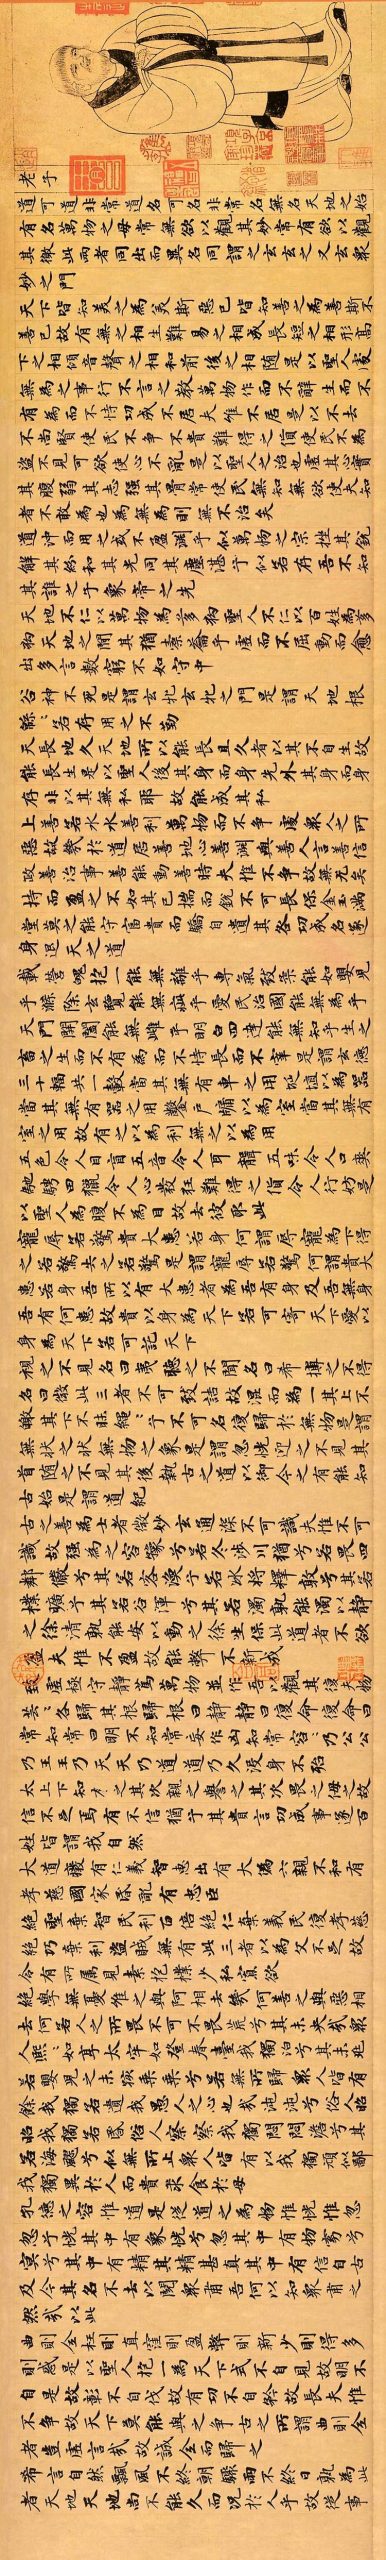 老子
道可道非常道名可名非常名無名天地之始
有名萬物之母常無欲以觀其妙常有欲以觀
其徼此兩者同出而異名同謂之玄玄之又玄眾
妙之門
天下皆知美之為美斯惡已皆知善之為善斯不
善已故有無之相生難易之相成長短之相形高
下之相傾音聲之相和前後之相隨是以聖人處
無為之事行不言之教萬物作而不辭生而不
有為而不恃功成不居夫惟不居是以不去
不尚賢使民不爭不貴難得之貨使民不為
盜不見可欲使心不亂是以聖人之治也虛其心實
其腹弱其志強其骨常使民無知無欲使夫知
者不敢為也為無為則無不治矣
道沖而用之或不盈淵乎似萬物之宗挫其銳
解其紛和其光同其塵湛乎似若存吾不知
其誰之子象帝之先
天地不仁以萬物為芻狗聖人不仁以百姓為芻
狗天地之間其猶橐籥乎虛而不屈動而愈
出多言數窮不如守中
谷神不死是謂玄牝玄牝之門是謂天地根
綿綿若存用之不勤
天長地久天地所以能長且久者以其不自生故
能長生是以聖人後其身而身先外其身而身
存非以其無私耶故能成其私
上善若水水善利萬物而不爭處眾人之所
惡故幾於道居善地心善淵與善人言善信
政善治事善能動善時夫惟不爭故無尤矣
持而盈之不如其已揣而銳不可長保金玉滿
堂莫之能守富貴而驕自遺其咎功成名遂
身退天之道
載營魄抱一能無離乎專氣致柔能如嬰兒
乎滌除玄覽能無疵乎愛民治國能無為乎
天門開闔能無雌乎明白四達能無知乎生之
畜之生而不有為而不恃長而不宰是謂玄德
三十輻共一轂當其無有車之用埏埴以為器
當其無有器之用鑿戶牖以為室當其無有
室之用故有之以為利無之以為用
五色令人目盲五音令人耳聾五味令人口爽
馳騁田獵令人心發狂難得之貨令人行妨是
以聖人為腹不為目故去彼取此
寵辱若驚貴大患若身何謂辱寵為下得
之若驚失之若驚是謂寵辱若驚何謂貴大
患若身吾所以有大患者為吾有身及吾無身
吾有何患故貴以身為天下若可寄天下愛以
身為天下若可託天下
視之不見名曰夷聽之不聞名曰希搏之不得
名曰微此三者不可致詰故混而為一其上不
皦其下不昧繩繩兮不可名復歸於無物是謂
無狀之狀無物之象是謂忽恍迎之不見其
首隨之不見其後執古之道以御今之有能知
古始是謂道紀
古之善為士者微妙玄通深不可識夫惟不可
識故強為之容豫兮若冬涉川猶兮若畏四
鄰儼兮其若容渙乎若冰將釋敦兮其若
樸曠乎其若谷渾兮其若濁孰能濁以靜
之徐清孰能安以動之徐生保此道者不欲
盈夫惟不盈故能弊不新成
至虛極守靜篤萬物並作吾以觀其復夫物
芸芸各歸其根歸根曰靜靜曰復命復命曰
常知常曰明不知常妄作凶知常容容乃公公
乃王王乃天天乃道道乃久沒身不殆
太上下知有之其次親之譽之其次畏之侮之故
信不足焉有不信猶乎其貴言功成事遂百
姓皆謂我自然
大道癈有仁義智惠出有大偽六親不和有
孝慈國家昏亂有忠臣
絕聖棄智民利百倍絕仁棄義民復孝慈
絕巧棄利盜賊無有此三者以為文不足故
令有所屬見素抱樸少私寡欲
絕學無憂唯之與阿相去幾何善之與惡相
去何若人之所畏不可不畏荒兮其未央哉眾
人熙熙如享太牢如登春臺我獨泊兮其未兆
若嬰兒之未孩乘乘兮若無所歸眾人皆有
餘我獨若遺我愚人之心也哉沌沌兮俗人昭
昭我獨若昏俗人察察我獨悶悶澹兮其
若海飂兮似無所止眾人皆有以我獨頑似鄙
我獨異於人而貴求食於母
孔德之容惟道是從道之為物惟恍惟忽
忽乎恍其中有象恍兮忽其中有物窈兮
冥兮其中有精其精甚真其中有信自古
及今其名不去以閱眾甫吾何以知眾甫之
然哉以此
曲則全枉則直窪則盈弊則新少則得多
則惑是以聖人抱一為天下式不自見故明不
自是故彰不自伐故有功不自矜故長夫惟
不爭故天下莫能與之爭古之所謂曲則全
者豈虛言哉故誠全而歸之
希言自然飄風不終朝驟雨不終日孰為此
者天地天地尚不能久而況於人乎故從事